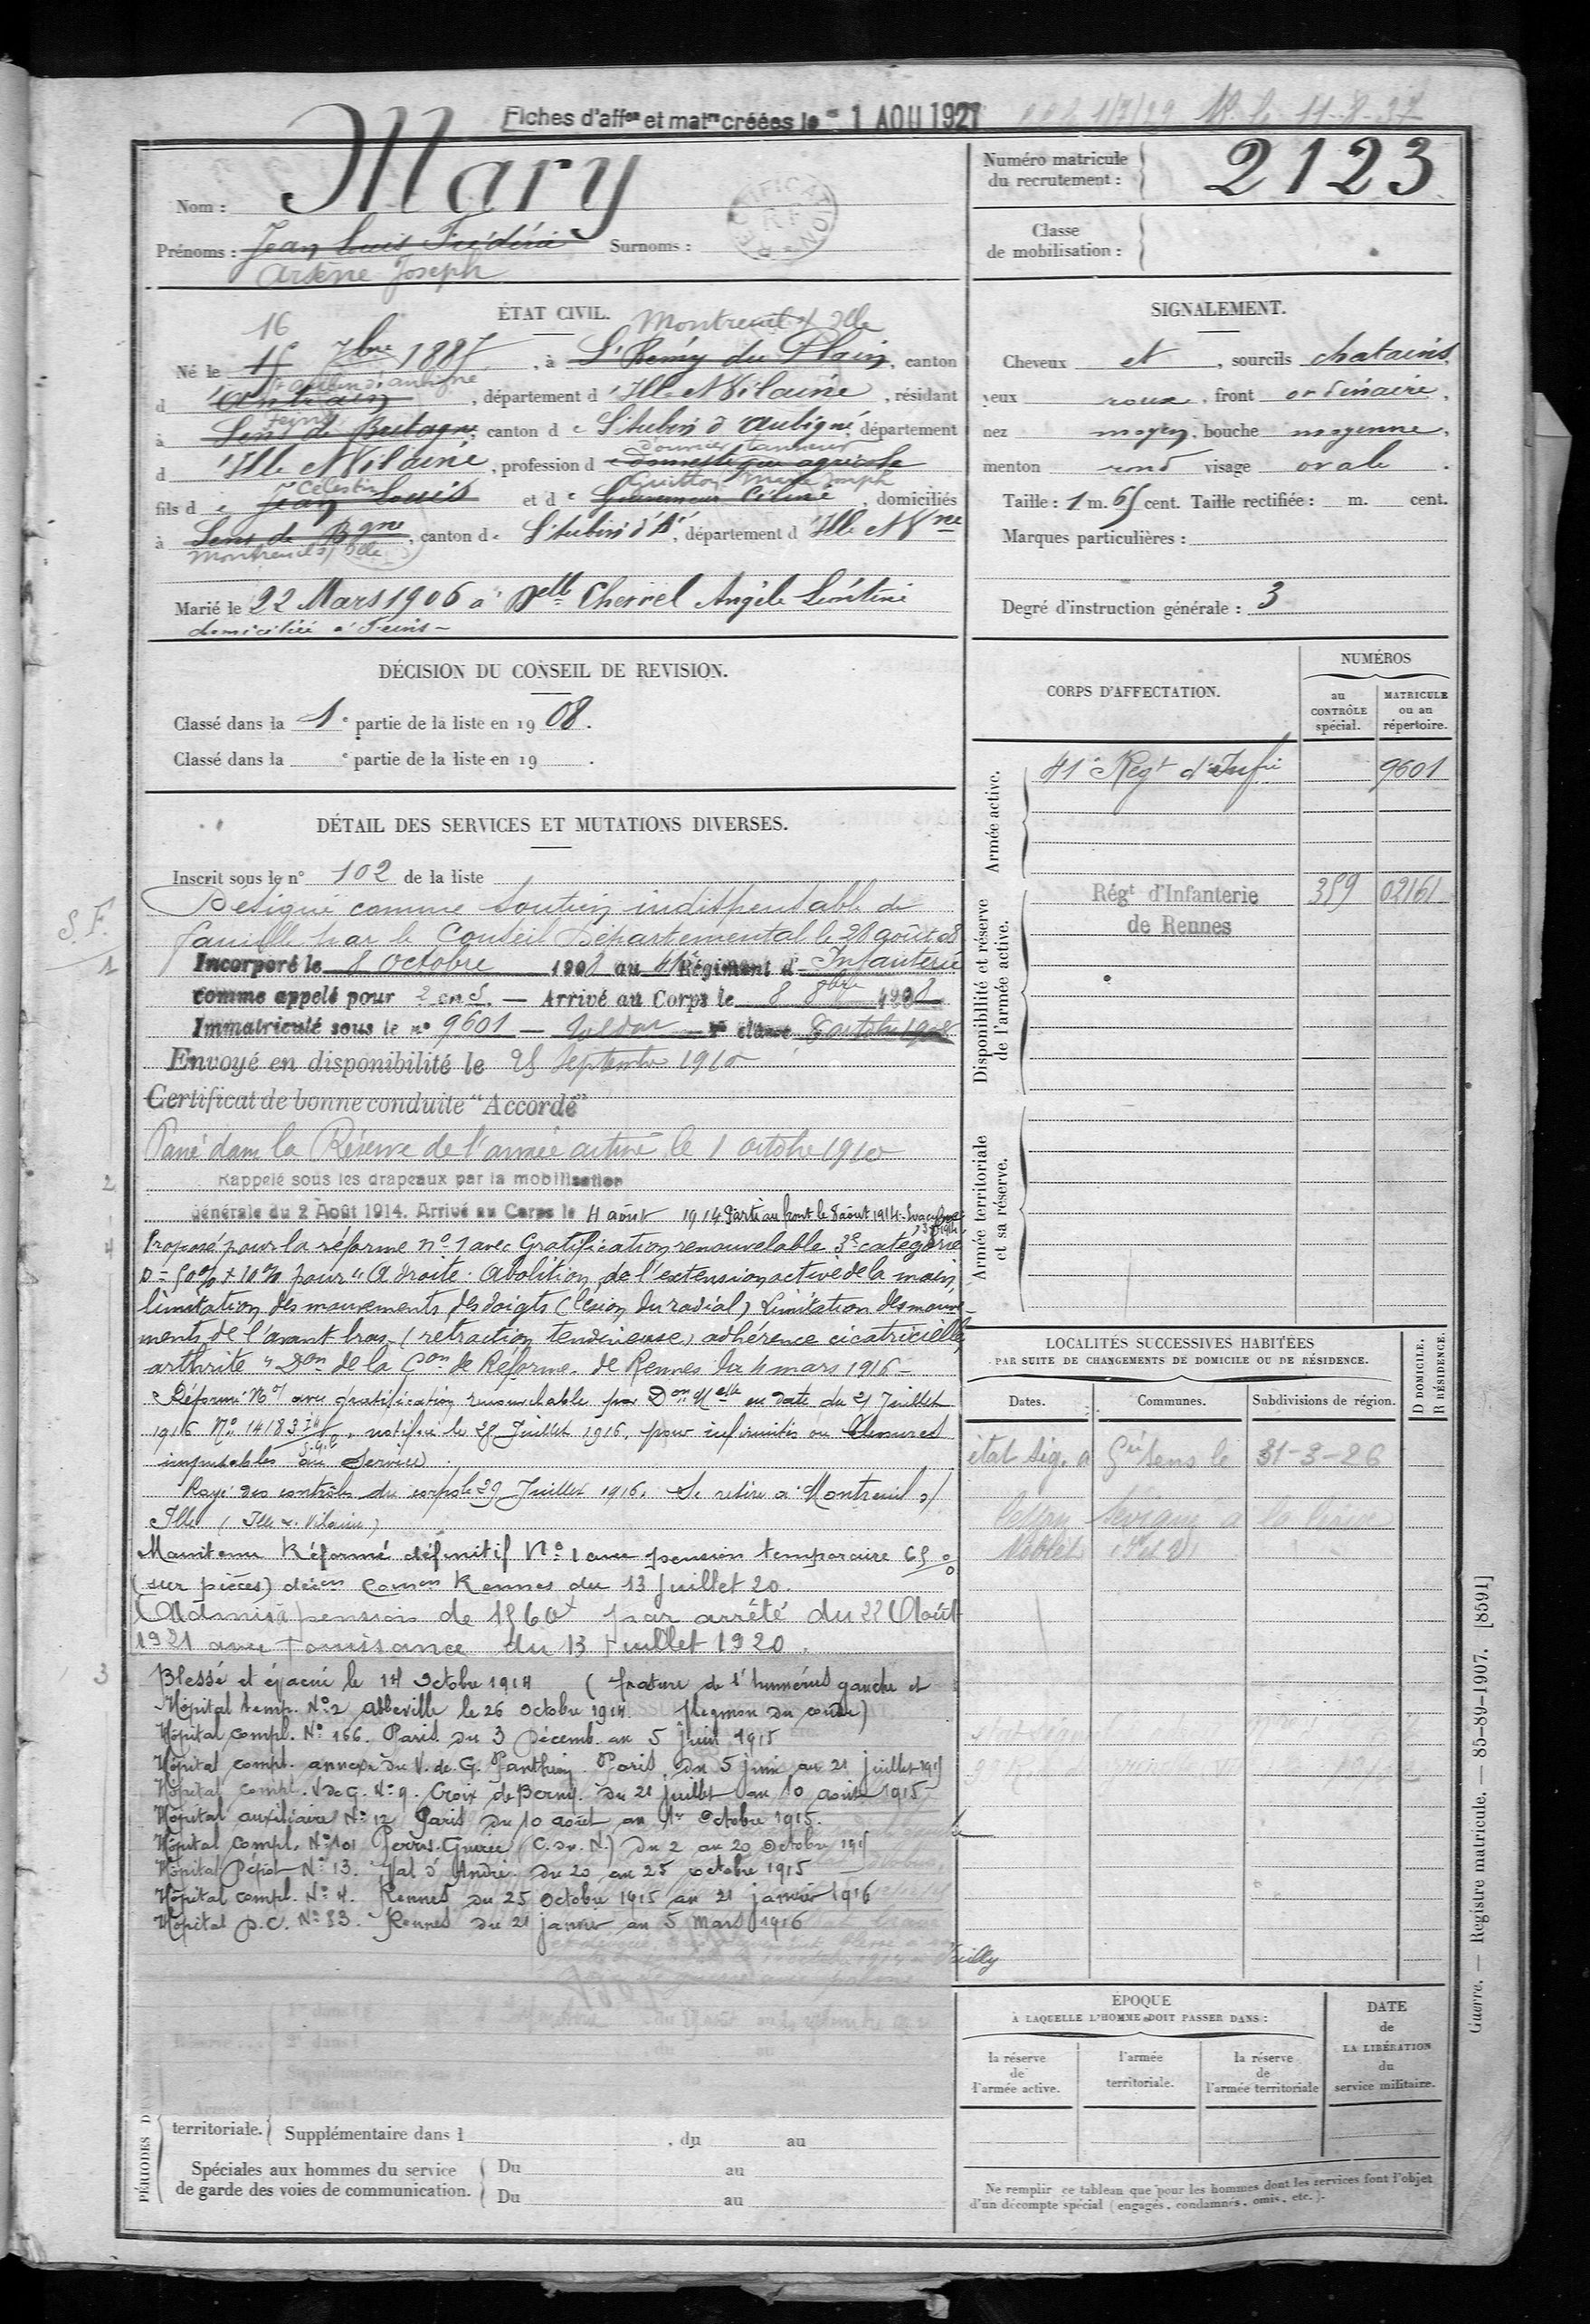 Fiches d'affon et matre créées le 1 AOU 1927 1/7/29 11-8-37
Nom : Mary
Prénoms : Jean Louis Frédéric Surnoms :
Arsène Joseph
RECTIFICATION
Numéro matricule du recrutement : 2123
Classe de mobilisation :
ÉTAT CIVIL. Montreuil s/ Ille
16
Né le 15 7bre 1887, à St Remy du Plain, canton
St aubin d'aubigné
d'Antrain, département d'Ille et Vilaine, résidant
Feins
à Sens de Bretagne, canton de St Aubin d'Aubigné, département
d'ouvrier tanneur
d'Ille et Vilaine, profession de domestique agricole
Célestin Guitton Marie Joseph
fils de Jean Louis et de Céline, domiciliés
à Sens de Bgne, canton de St Aubin d'A', département d'Ille et Vne
Montreuil s/ Ille
Marié le 22 Mars 1906 à Delle Chervel Angèle Léontine
domiciliée à Feins
SIGNALEMENT.
Cheveux et, sourcils chatains,
yeux roux, front ordinaire,
nez moyen, bouche moyenne,
menton rond visage ovale.
Taille : 1 m. 65 cent. Taille rectifiée : m. cent.
Marques particulières :
Degré d'instruction générale : 3
DÉCISION DU CONSEIL DE REVISION.
Classé dans la 1e partie de la liste en 1908.
Classé dans la e partie de la liste en 19 .
CORPS D'AFFECTATION.
NUMÉROS
au CONTRÔLE spécial.
MATRICULE ou au répertoire.
Armée active.
41e Regt d'Infie 9601
Disponibilité et réserve de l'armée active.
Régt d'Infanterie 359 02161
de Rennes
Armée territoriale et sa réserve.
DÉTAIL DES SERVICES ET MUTATIONS DIVERSES.
Inscrit sous le n° 102 de la liste
S.F.
1
Désigné comme soutien indispensable de
famille par le Conseil Départemental le 28 août 08
Incorporé le 8 Octobre 1908 au 41e Régiment d'Infanterie
comme appelé pour 2 ans. — Arrivé au Corps le 8 8bre 1908
Immatriculé sous le n° 9601 — soldat 2e classe 8 octobre 1908
Envoyé en disponibilité le 25 Septembre 1910
Certificat de bonne conduite "Accordé"
Passé dans la Réserve de l'armée active le 1 octobre 1910
2
Rappelé sous les drapeaux par la mobilisation
générale du 2 Août 1914. Arrivé au Corps le 4 août 1914 Parti au front le 8 août 1914.
4
Proposé pour la réforme n° 1 avec Gratification renouvelable 3e catégorie
D = 50% + 10% pour "A droite. Abolition de l'extension active de la main
limitation des mouvements des doigts (lésion du radial) Limitation des mouve-
ments de l'avant bras (retraction tendineuse) adhérence cicatricielle,
arthrite" Don de la Con de Réforme de Rennes du 4 mars 1916 -
Réformé N°1 avec gratification renouvelable par Don Melle en date du 21 Juillet
1916 N° 14183 , notifiée le 28 Juillet 1916, pour infirmités ou blessures
imputables au Service.
Rayé des contrôles du corps le 29 Juillet 1916. Se retire à Montreuil s/
Ille (Ille et Vilaine)
Maintenu Réformé définitif N°1 avec pension temporaire 65%
(sur pièces) décion Comon Rennes du 13 Juillet 20.
Admis à pension de 1560f par arrêté du 22 Août
1921 avec Jouissance du 13 Juillet 1920.
3
Blessé et évacué le 14 Octobre 1914 (fracture de l'humérus gauche et
Hôpital temp. N°2 Abbeville le 26 Octobre 1914 flegmon du coude)
Hôpital compl. N° 166. Paris du 3 Décemb. au 5 juin 1915
Hôpital compl. annexe du V. de G. Panthéon Paris, du 5 juin au 21 juillet 1915
Hôpital compl. V de G. N° 9. Croix de Berny. du 21 juillet au 10 août 1915
Hôpital auxiliaire N° 12 Paris du 10 août au 1er Octobre 1915.
Hôpital Compl. N° 101 Perros-Guirec (C. du N.) du 2 au 20 Octobre 1915
Hôpital Dépôt N° 13. Val d'André. du 20 au 25 octobre 1915
Hôpital compl. N° 4. Rennes du 25 Octobre 1915 au 21 janvier 1916
Hôpital D.C. N° 83. Rennes du 21 janvier au 5 Mars 1916
LOCALITÉS SUCCESSIVES HABITÉES
PAR SUITE DE CHANGEMENTS DE DOMICILE OU DE RÉSIDENCE.
Dates. Communes. Subdivisions de région. D DOMICILE. R RÉSIDENCE.
état sig. a Gie Sens le 31-3-26
PÉRIODES
territoriale. Supplémentaire dans l , du au
Spéciales aux hommes du service de garde des voies de communication.
Du au
Du au
ÉPOQUE
À LAQUELLE L'HOMME DOIT PASSER DANS :
la réserve de l'armée active.
l'armée territoriale.
la réserve de l'armée territoriale
DATE de LA LIBÉRATION du service militaire.
Ne remplir ce tableau que pour les hommes dont les services font l'objet
d'un décompte spécial (engagés, condamnés, omis, etc.).
Guerre. — Registre matricule. — 85-89-1907. [8591]